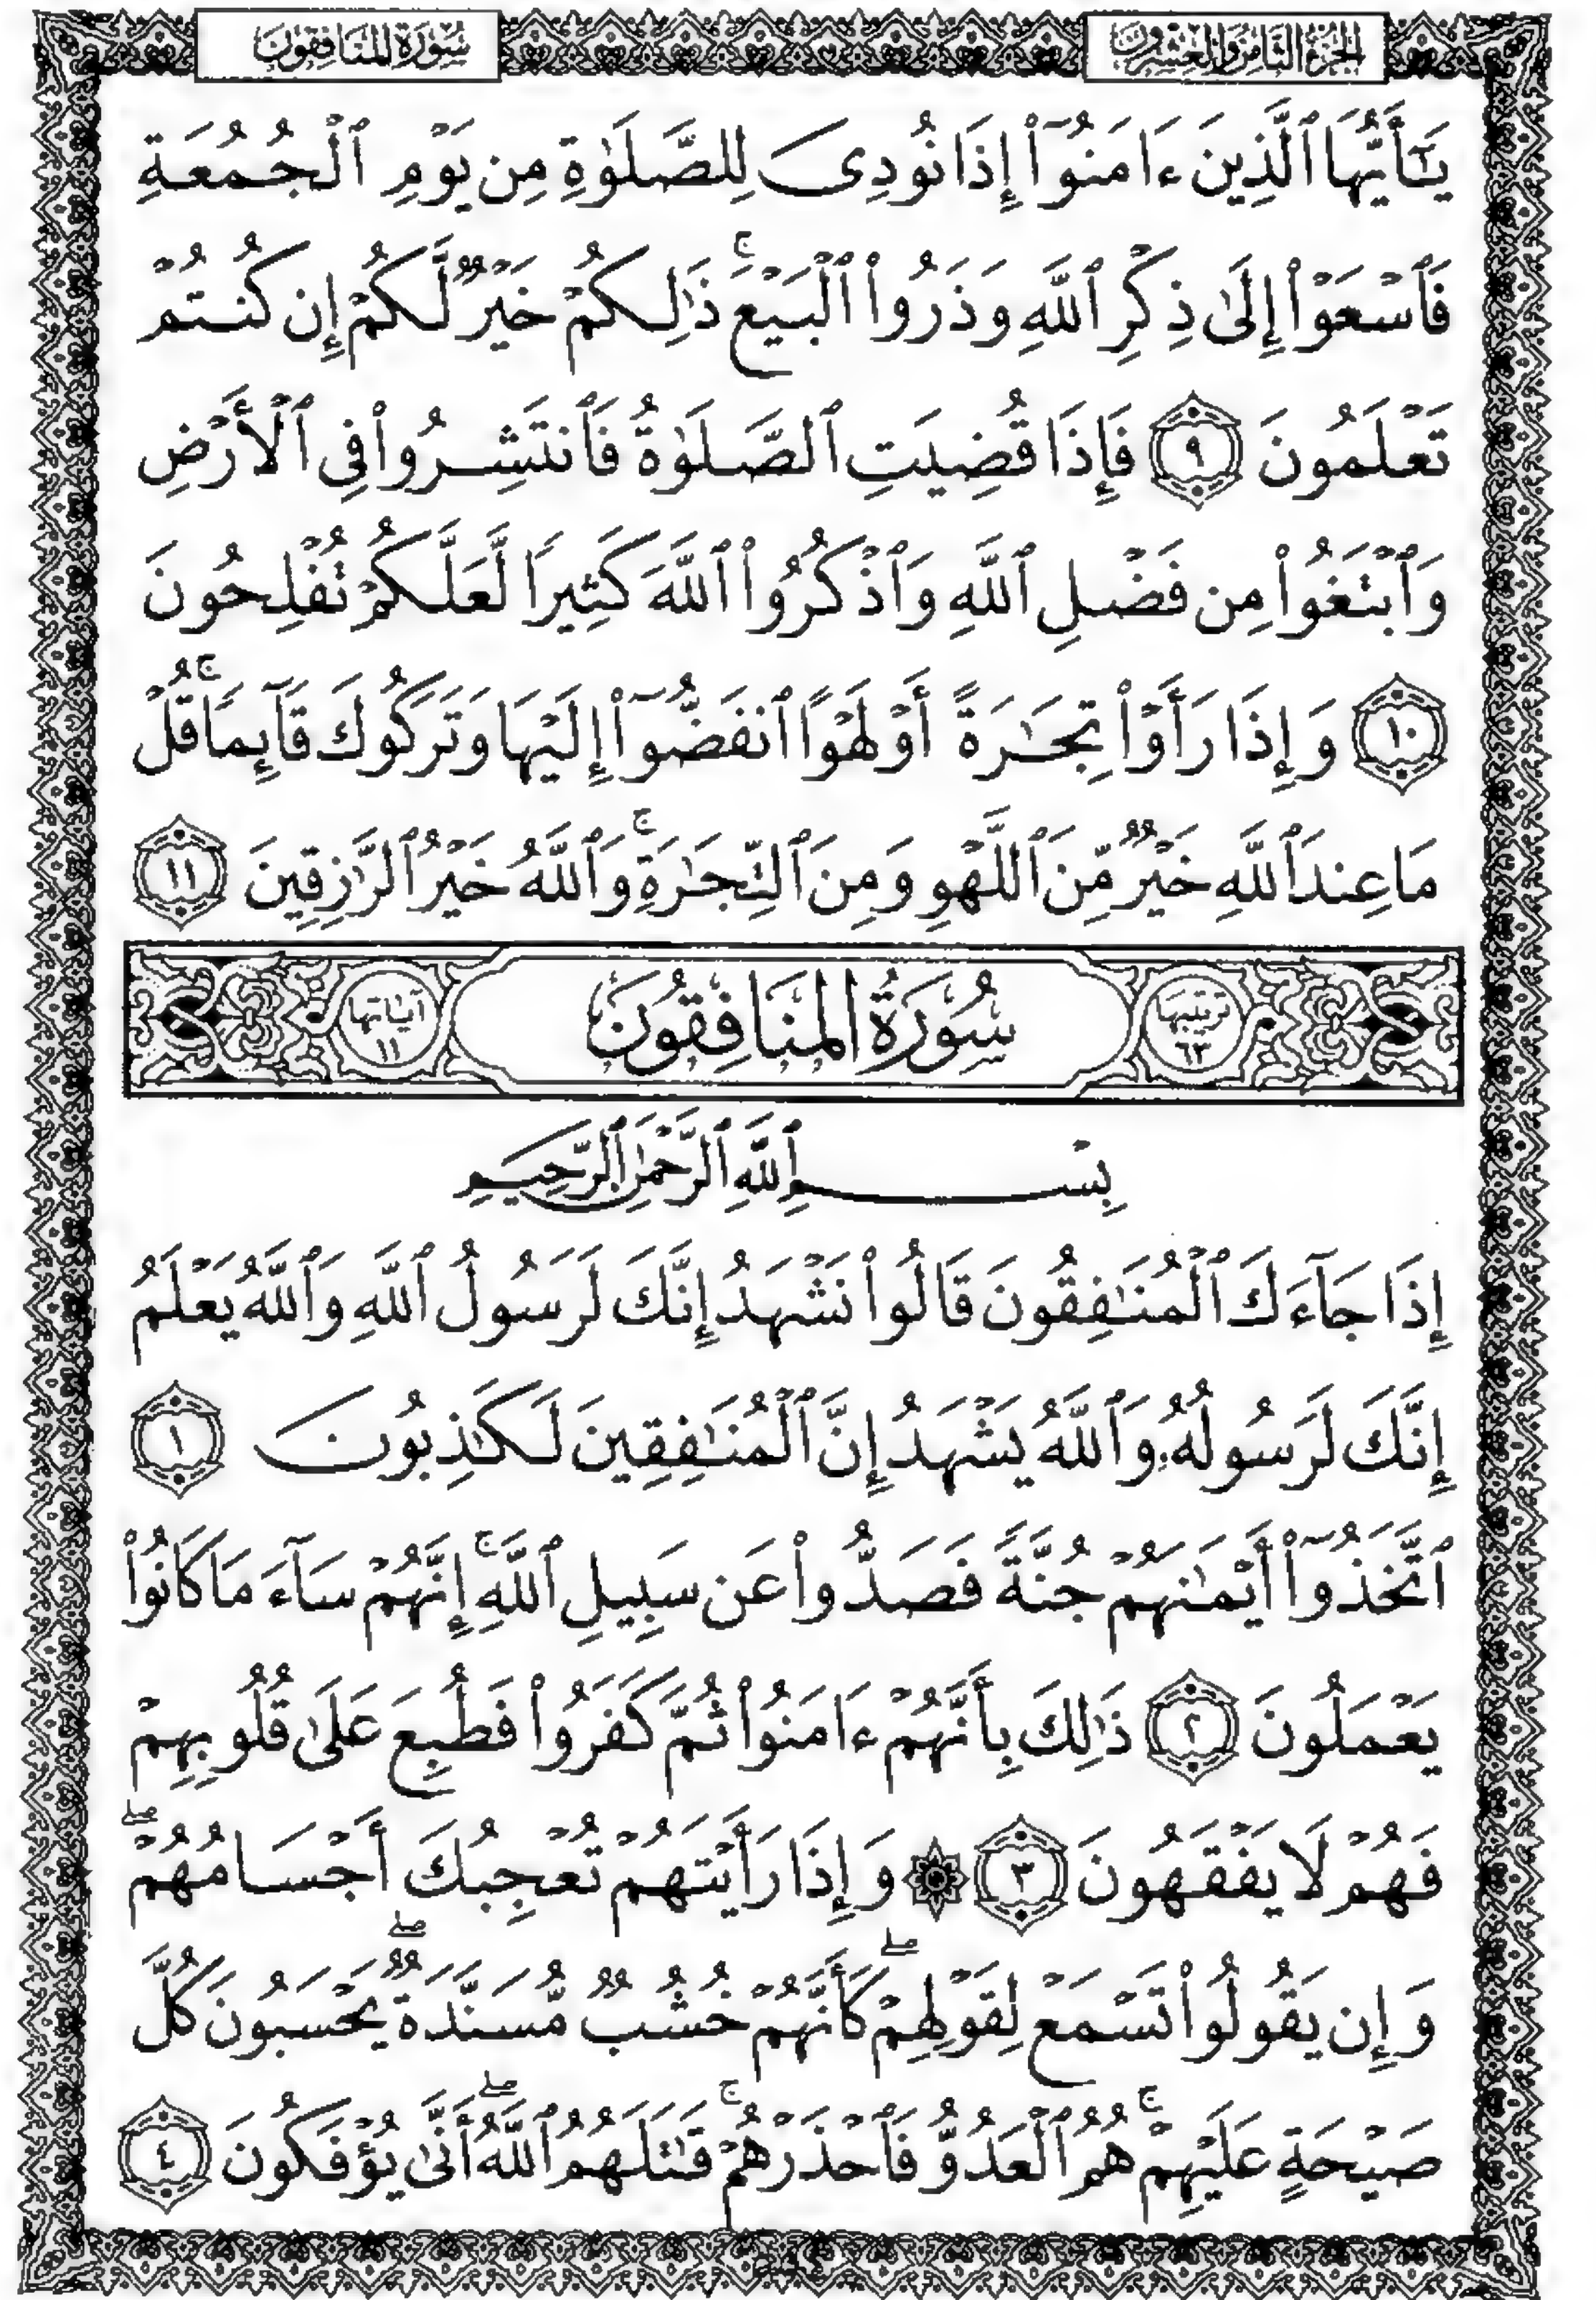 الجزء الثامن والعشرون
سورة المنافقون
يَـٰٓأَيُّهَا ٱلَّذِينَ ءَامَنُوٓا۟ إِذَا نُودِىَ لِلصَّلَوٰةِ مِن يَوْمِ ٱلْجُمُعَةِ
فَٱسْعَوْا۟ إِلَىٰ ذِكْرِ ٱللَّهِ وَذَرُوا۟ ٱلْبَيْعَ ۚ ذَٰلِكُمْ خَيْرٌ لَّكُمْ إِن كُنتُمْ
تَعْلَمُونَ ٩ فَإِذَا قُضِيَتِ ٱلصَّلَوٰةُ فَٱنتَشِرُوا۟ فِى ٱلْأَرْضِ
وَٱبْتَغُوا۟ مِن فَضْلِ ٱللَّهِ وَٱذْكُرُوا۟ ٱللَّهَ كَثِيرًا لَّعَلَّكُمْ تُفْلِحُونَ
١٠ وَإِذَا رَأَوْا۟ تِجَـٰرَةً أَوْ لَهْوًا ٱنفَضُّوٓا۟ إِلَيْهَا وَتَرَكُوكَ قَآئِمًا ۚ قُلْ
مَا عِندَ ٱللَّهِ خَيْرٌ مِّنَ ٱللَّهْوِ وَمِنَ ٱلتِّجَـٰرَةِ ۚ وَٱللَّهُ خَيْرُ ٱلرَّٰزِقِينَ ١١
ترتيبها ٦٣ سُورَةُ المنَافِقُونَ آياتها ١١
بِسْمِ ٱللَّهِ ٱلرَّحْمَـٰنِ ٱلرَّحِيمِ
إِذَا جَآءَكَ ٱلْمُنَـٰفِقُونَ قَالُوا۟ نَشْهَدُ إِنَّكَ لَرَسُولُ ٱللَّهِ وَٱللَّهُ يَعْلَمُ
إِنَّكَ لَرَسُولُهُۥ وَٱللَّهُ يَشْهَدُ إِنَّ ٱلْمُنَـٰفِقِينَ لَكَـٰذِبُونَ ١
ٱتَّخَذُوٓا۟ أَيْمَـٰنَهُمْ جُنَّةً فَصَدُّوا۟ عَن سَبِيلِ ٱللَّهِ ۚ إِنَّهُمْ سَآءَ مَا كَانُوا۟
يَعْمَلُونَ ٢ ذَٰلِكَ بِأَنَّهُمْ ءَامَنُوا۟ ثُمَّ كَفَرُوا۟ فَطُبِعَ عَلَىٰ قُلُوبِهِمْ
فَهُمْ لَا يَفْقَهُونَ ٣ ۞ وَإِذَا رَأَيْتَهُمْ تُعْجِبُكَ أَجْسَامُهُمْ ۖ
وَإِن يَقُولُوا۟ تَسْمَعْ لِقَوْلِهِمْ ۖ كَأَنَّهُمْ خُشُبٌ مُّسَنَّدَةٌ ۖ يَحْسَبُونَ كُلَّ
صَيْحَةٍ عَلَيْهِمْ ۚ هُمُ ٱلْعَدُوُّ فَٱحْذَرْهُمْ ۚ قَـٰتَلَهُمُ ٱللَّهُ ۖ أَنَّىٰ يُؤْفَكُونَ ٤